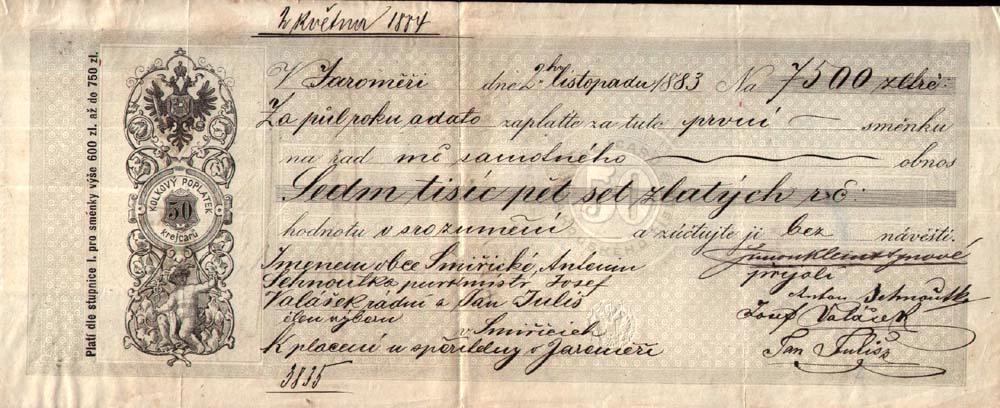 2 května 1884
Platí dle stupnice I. pro směnky výše 600 zl. až do 750 zl.
KOLKOVÝ POPLATEK
50
krejcarů
V Jaroměři dne 2ho listopadu 1883 Na 7500 zl r č:
Za půl roku a dato zaplaťte za tuto první směnku
na řad mě samotného obnos
50
Sedm tisíc pět set zlatých r č:
hodnotu v srozumění a zúčtujte ji bez návěští.
Jmenem obce Smiřické, Antonín
Sehnoutka purkmistr Josef
Valášek radní a Jan Juliš
člen výboru
v Smiřicích
K placení u spořitelny v Jaroměři
přijali
Anton Sehnoutka
Josef Valášek
Jan Julisz
3835